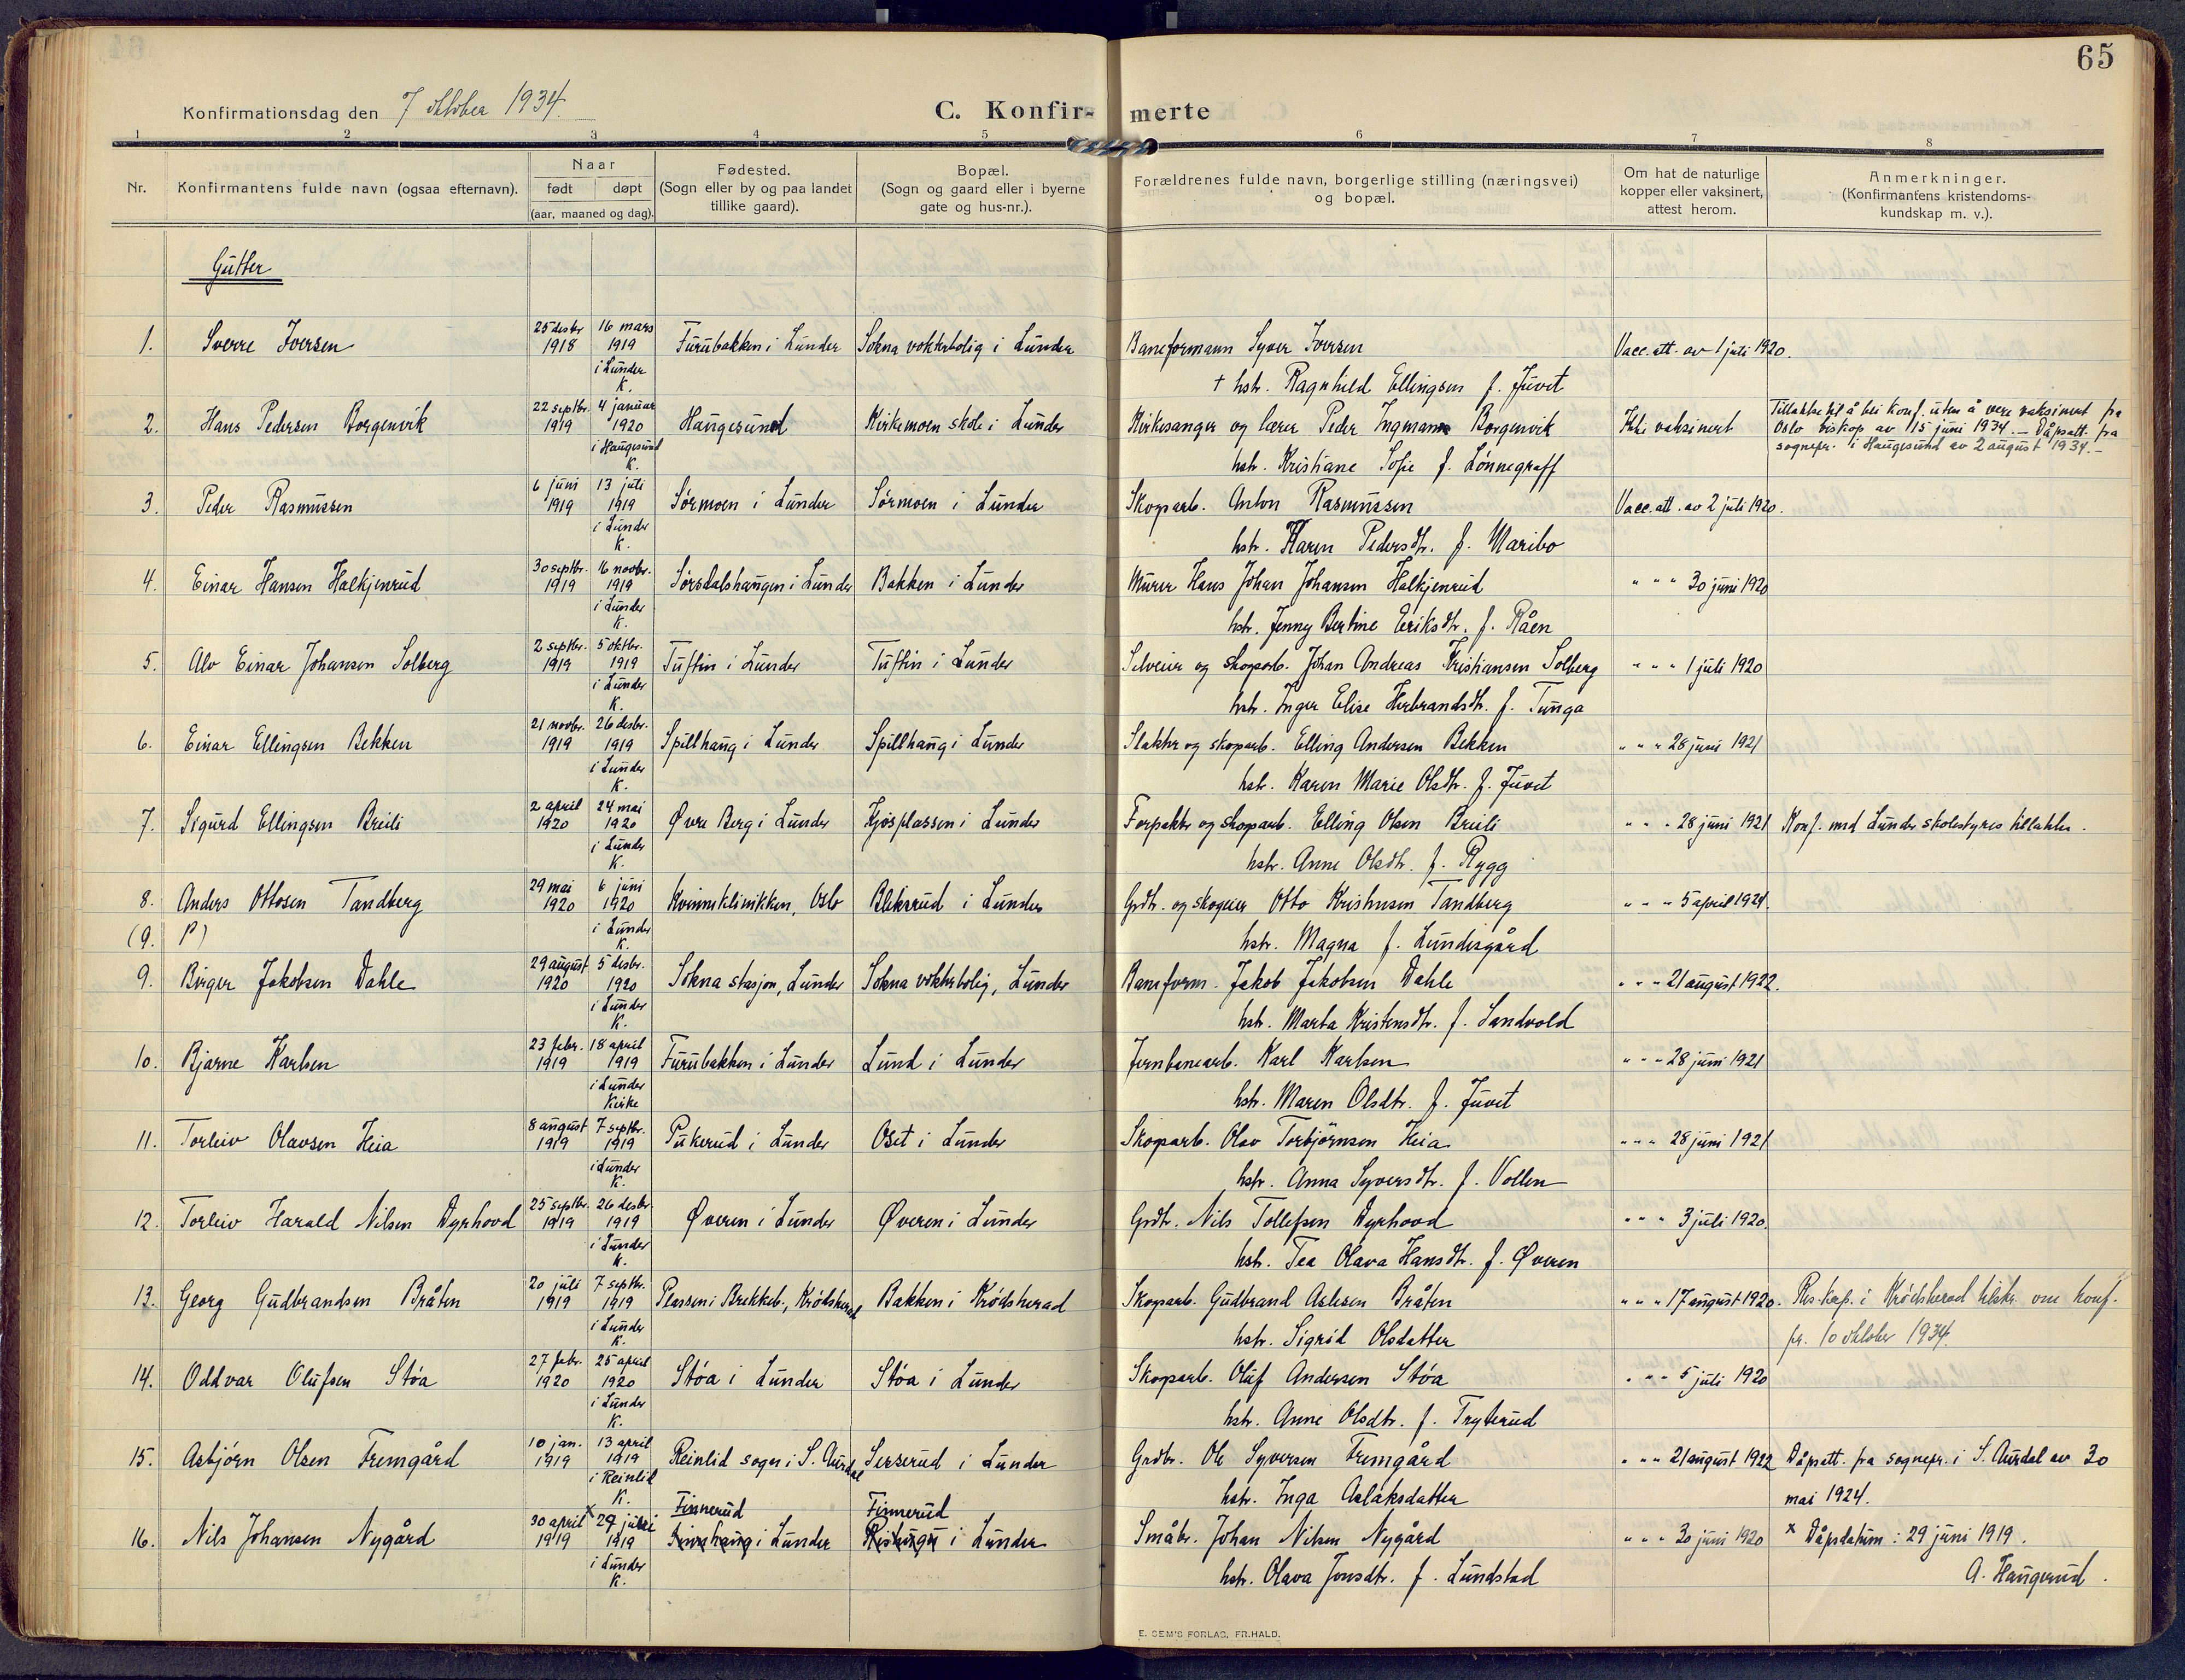 65
Konfirmationsdag den 7 oktober 1934.
C. Konfirmerte
1 2 3 4 5 6 7 8
Nr.
Konfirmantens fulde navn (ogsaa efternavn).
Naar
født døpt
(aar, maaned og dag).
Fødested.
(Sogn eller by og paa landet
tillike gaard).
Bopæl.
(Sogn og gaard eller i byerne
gate og hus-nr.).
Forældrenes fulde navn, borgerlige stilling (næringsvei)
og bopæl.
Om hat de naturlige
kopper eller vaksinert,
attest herom.
Anmerkninger.
(Konfirmantens kristendoms-
kundskap m. v.).
Gutter
25 desbr 16 mars
1. Sverre Iversen 1918 1919 Furubakken i Lunder Sokna vokterbolig i Lunder Baneformann Syver Iversen Vacc. att. av 1 juli 1920.
i Lunder
K. † hstr. Ragnhild Ellingsen f. Juvet
22 septbr. 4 januar
2. Hans Pedersen Borgenvik 1919 1920 Haugesund Kirkemoen skole i Lunder Kirkesanger og lærer Peder Ingmann Borgenvik Ikke vaksinert Tillatelse til å bli konf. uten å være vaksinert fra
Oslo biskop av 15 juni 1934. – Dåpsatt. fra
i Haugesund
K. hstr. Kristiane Sofie f. Lønnegraff sognepr. i Haugesund av 2 august 1934. –
6 juni 13 juli
3. Peder Rasmussen 1919 1919 Sørmoen i Lunder Sørmoen i Lunder Skogsarb. Anton Rasmussen Vacc. att. av 2 juli 1920.
i Lunder
K. hstr. Karen Pedersdtr. f. Maribo
30 septbr. 16 novbr.
4. Einar Hansen Halkjenrud 1919 1919 Sørsdalshaugen i Lunder Bakken i Lunder Murer Hans Johan Johansen Halkjenrud " " " 30 juni 1920
i Lunder
K. hstr. Jenny Bertine Eriksdtr. f. Råen
2 septbr. 5 oktbr.
5. Alv Einar Johansen Solberg 1919 1919 Tuftin i Lunder Tuftin i Lunder Selveier og skogsarb. Johan Andreas Kristiansen Solberg " " " 1 juli 1920
i Lunder
K. hstr. Inger Elise Herbrandsdtr. f. Tunga
21 novbr. 26 desbr.
6. Einar Ellingsen Bekken 1919 1919 Spillhaug i Lunder Spillhaug i Lunder Slakter og skogsarb. Elling Andersen Bekken " " " 28 juni 1921
i Lunder
K. hstr. Karen Marie Olsdtr. f. Juvet
2 april 24 mai
7. Sigurd Ellingsen Breili 1920 1920 Øvre Berg i Lunder Kjosplassen i Lunder Forpakter og skogsarb. Elling Olsen Breili " " " 28 juni 1921 Konf. med Lunder skolestyres tillatelse.
i Lunder
K. hstr. Anne Olsdtr. f. Rygg
29 mai 6 juni
8. Anders Ottosen Tandberg 1920 1920 Kvinneklinikken, Oslo Bleksrud i Lunder Grdbr. og skogeier Otto Kristensen Tandberg " " " 5 april 1924.
(9. P) i Lunder
K. hstr. Magna f. Lundesgård
29 august 5 desbr.
9. Birger Jakobsen Dahle 1920 1920 Sokna stasjon, Lunder Sokna vokterbolig, Lunder Baneform. Jakob Jakobsen Dahle " " " 21 august 1922.
i Lunder
K. hstr. Marta Kristensdtr. f. Sandvold
23 febr. 18 april
10. Bjarne Karlsen 1919 1919 Furubakken i Lunder Lund i Lunder Jernbanearb. Karl Karlsen " " " 28 juni 1921
i Lunder
Kirke hstr. Maren Olsdtr. f. Juvet
8 august 7 septbr.
11. Torleiv Olavsen Heia 1919 1919 Pukerud i Lunder Oset i Lunder Skogsarb. Olav Torbjørnsen Heia " " " 28 juni 1921
i Lunder
K. hstr. Anna Syversdtr. f. Vollen
25 septbr. 26 desbr.
12. Torleiv Harald Nilsen Dyrhovd 1919 1919 Øveren i Lunder Øveren i Lunder Grdbr. Nils Tollefsen Dyrhovd " " " 3 juli 1920.
i Lunder
K. hstr. Tea Olava Hansdtr. f. Øveren
20 juli 7 septbr.
13. Georg Gudbrandsen Bråten 1919 1919 Plassen i Brekkeb., Krødsherad Bakken i Krødsherad Skogsarb. Gudbrand Aslesen Bråten " " " 17 august 1920. Res. kap. i Krødsherad tilskr. om konf.
i Lunder
K. hstr. Sigrid Olsdatter pr. 10 oktober 1934.
27 febr. 25 april
14. Oddvar Olufsen Støa 1920 1920 Støa i Lunder Støa i Lunder Skogsarb. Oluf Andersen Støa " " " 5 juli 1920
i Lunder
K. hstr. Anne Olsdtr. f. Tryterud
10 jan. 13 april
15. Asbjørn Olsen Fremgård 1919 1919 Reinlid sogn i S. Aurdal Serserud i Lunder Grdbr. Ole Syversen Fremgård " " " 21 august 1922 Dåpsatt. fra sognepr. i S. Aurdal av 30
i Reinlid
K. hstr. Inga Aslaksdatter mai 1924.
30 april x 29 juni Finnerud Finnerud
16. Nils Johansen Nygård 1919 1919 i Lunder i Lunder Småbr. Johan Nilsen Nygård " " " 30 juni 1920 x Dåpsdatum: 29 juni 1919.
i Lunder
K. hstr. Olava Jonsdtr. f. Lundstad A. Haugerud.
E. SEM'S FORLAG, FR.HALD.